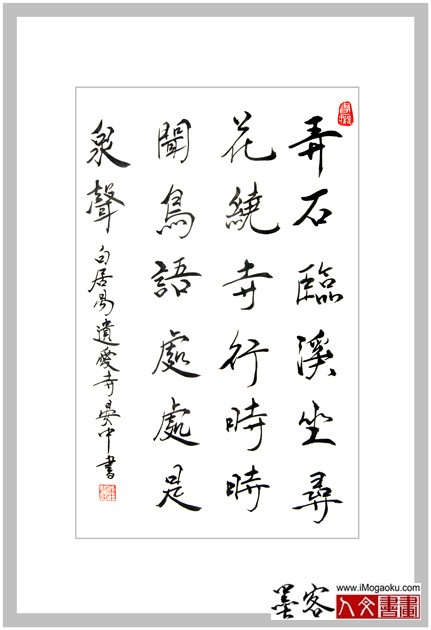 弄石臨溪坐尋
花繞寺行時時
聞鳥語處處是
泉聲 白居易遺愛寺晏中書
墨客
www.iMogaoku.com
人文書畫